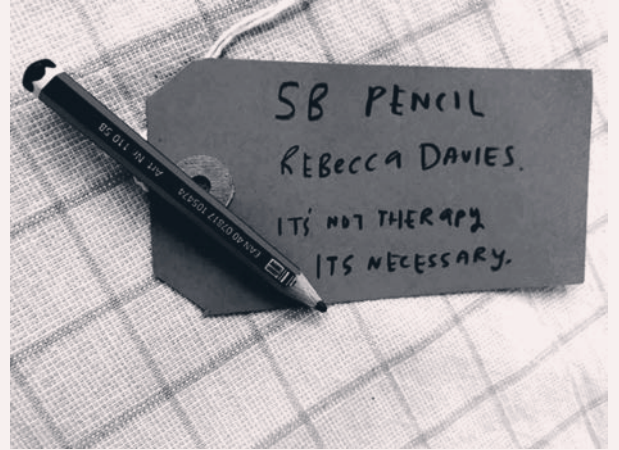 5B PENCIL
REBECCA DAVIES.
IT'S NOT THERAPY
ITS NECESSARY.
Art Nr 110 5B
EAN 40 07817 105474